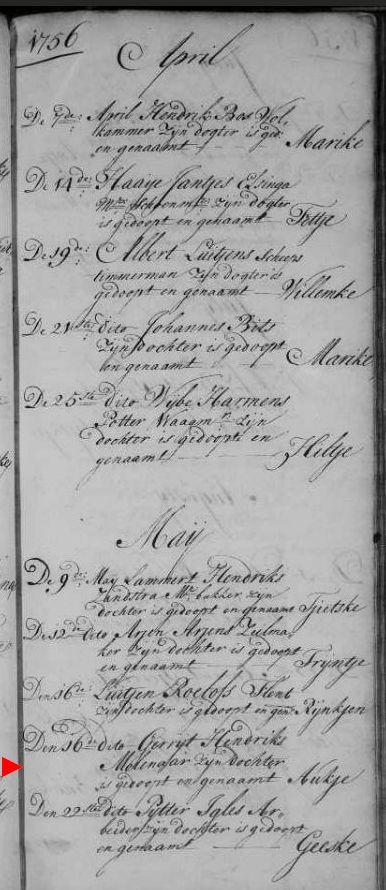 1756
April
De 7de: April Hendrik Bos Wol,
kammer zyn dogter is ged:
en genaamt Marike
De 14de: Haaye Jantjes Elsinga
Mr: Schoenmr zyn dogter
is gedoopt en genaamt Fettje
De 19de: Albert Luitjens Scheeps
timmerman zyn dogter is
gedoopt en genaamt Willemke
De 21ste dito Johannes Bits
zyn dochter is gedoopt
en genaamt Marike
De 25ste dito Wybe Harmens
Potter Waagmr: zyn
dochter is gedoopt en
genaamt Hiltje
Maÿ
De 9de: May Lammert Hendriks
Zandstra Mr: bakker zyn
dochter is gedoopt en genaamt Tjietske
De 12de dito Arjen Arjens Zulma,
ker zyn dochter is gedoopt
en genaamt Tryntje
Den 16de: Luitjen Roelofs
zyn dochter is gedoopt en gen: Rijnkjen
Den 16de dito Gerryt Hendriks
Molenaar zyn dochter
is gedoopt en genaamt Aukje
Den 22ste dito Pytter Igles Ar,
beider zyn dochter is gedoopt
en genaamt Geeske